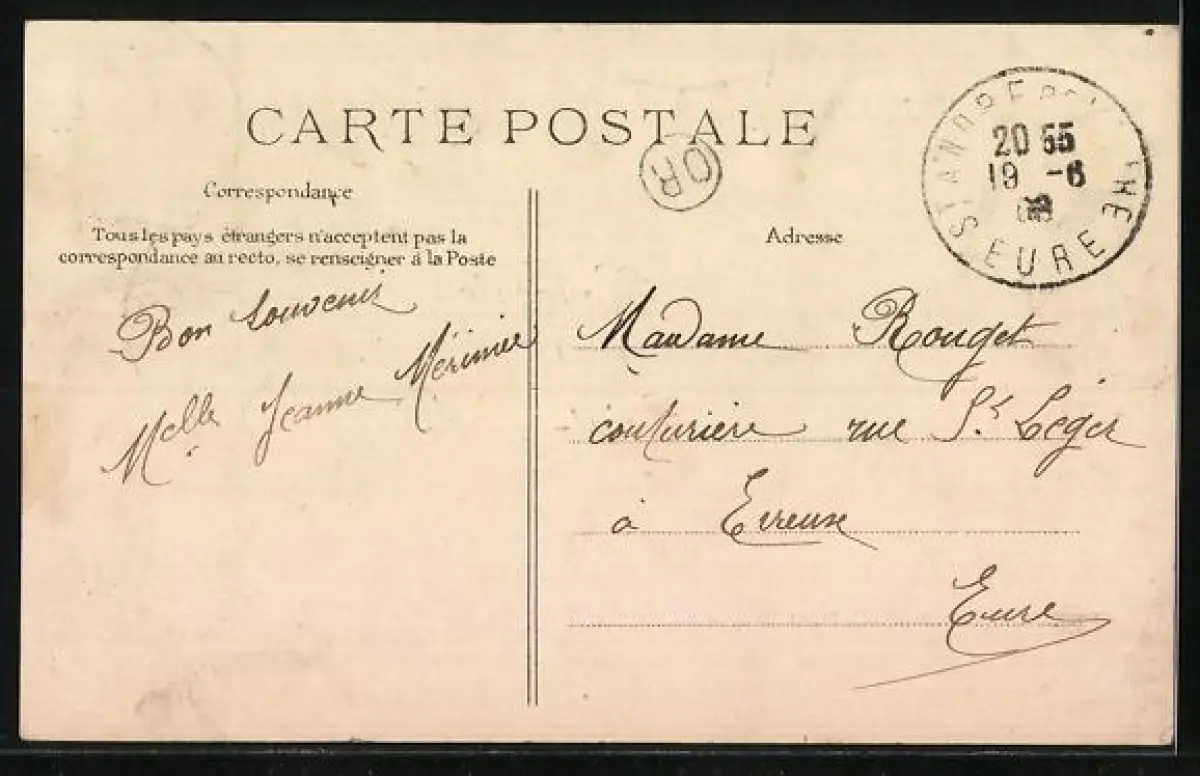 CARTE POSTALE
OR
20 55
19 -6
EURE
Correspondance
Tous les pays étrangers n'acceptent pas la
correspondance au recto, se renseigner à la Poste
Adresse
Bon Souvenir
Melle Jeanne Mérimée
Madame Rouget
couturière rue St Léger
à Evreux
Eure